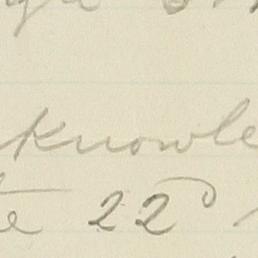 knowle
te 22d